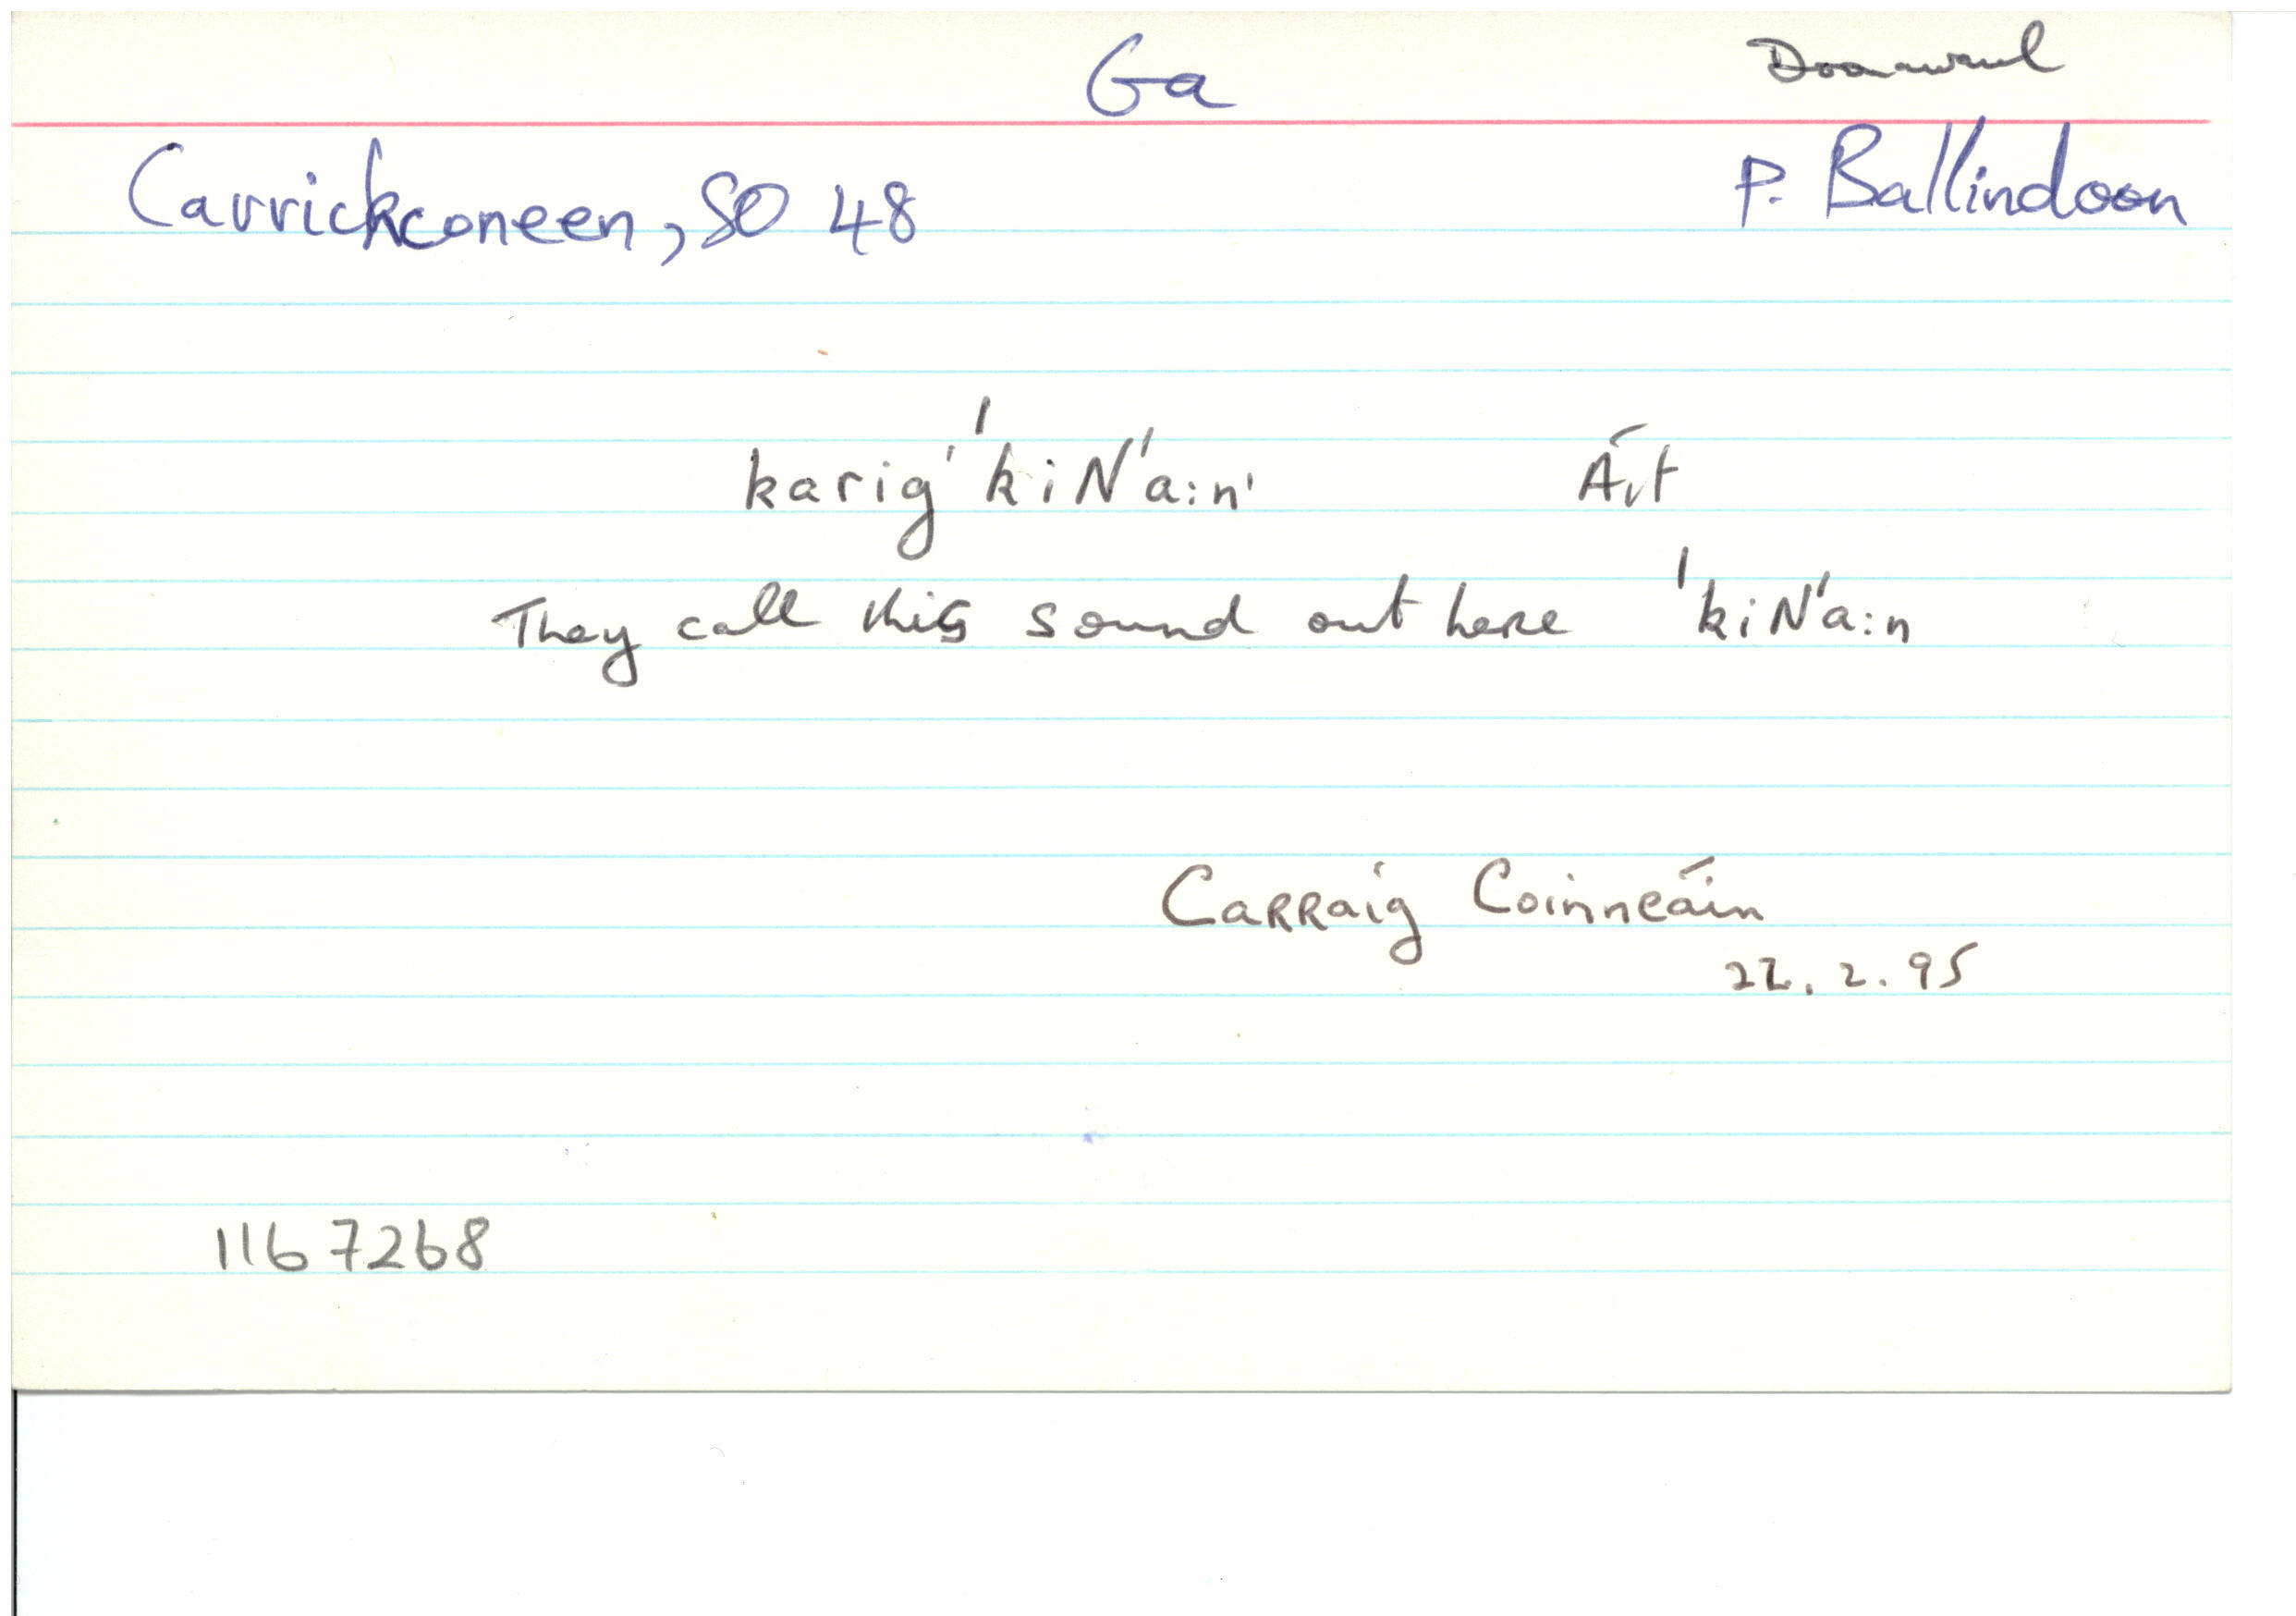 Ga Doonawaul
Carrickconeen, SO 48 P. Ballindoon
karig' 'kiN'a:n' Áit
They call this sound out here 'kiN'a:n
Carraig Coinneáin
22.2.95
1167268